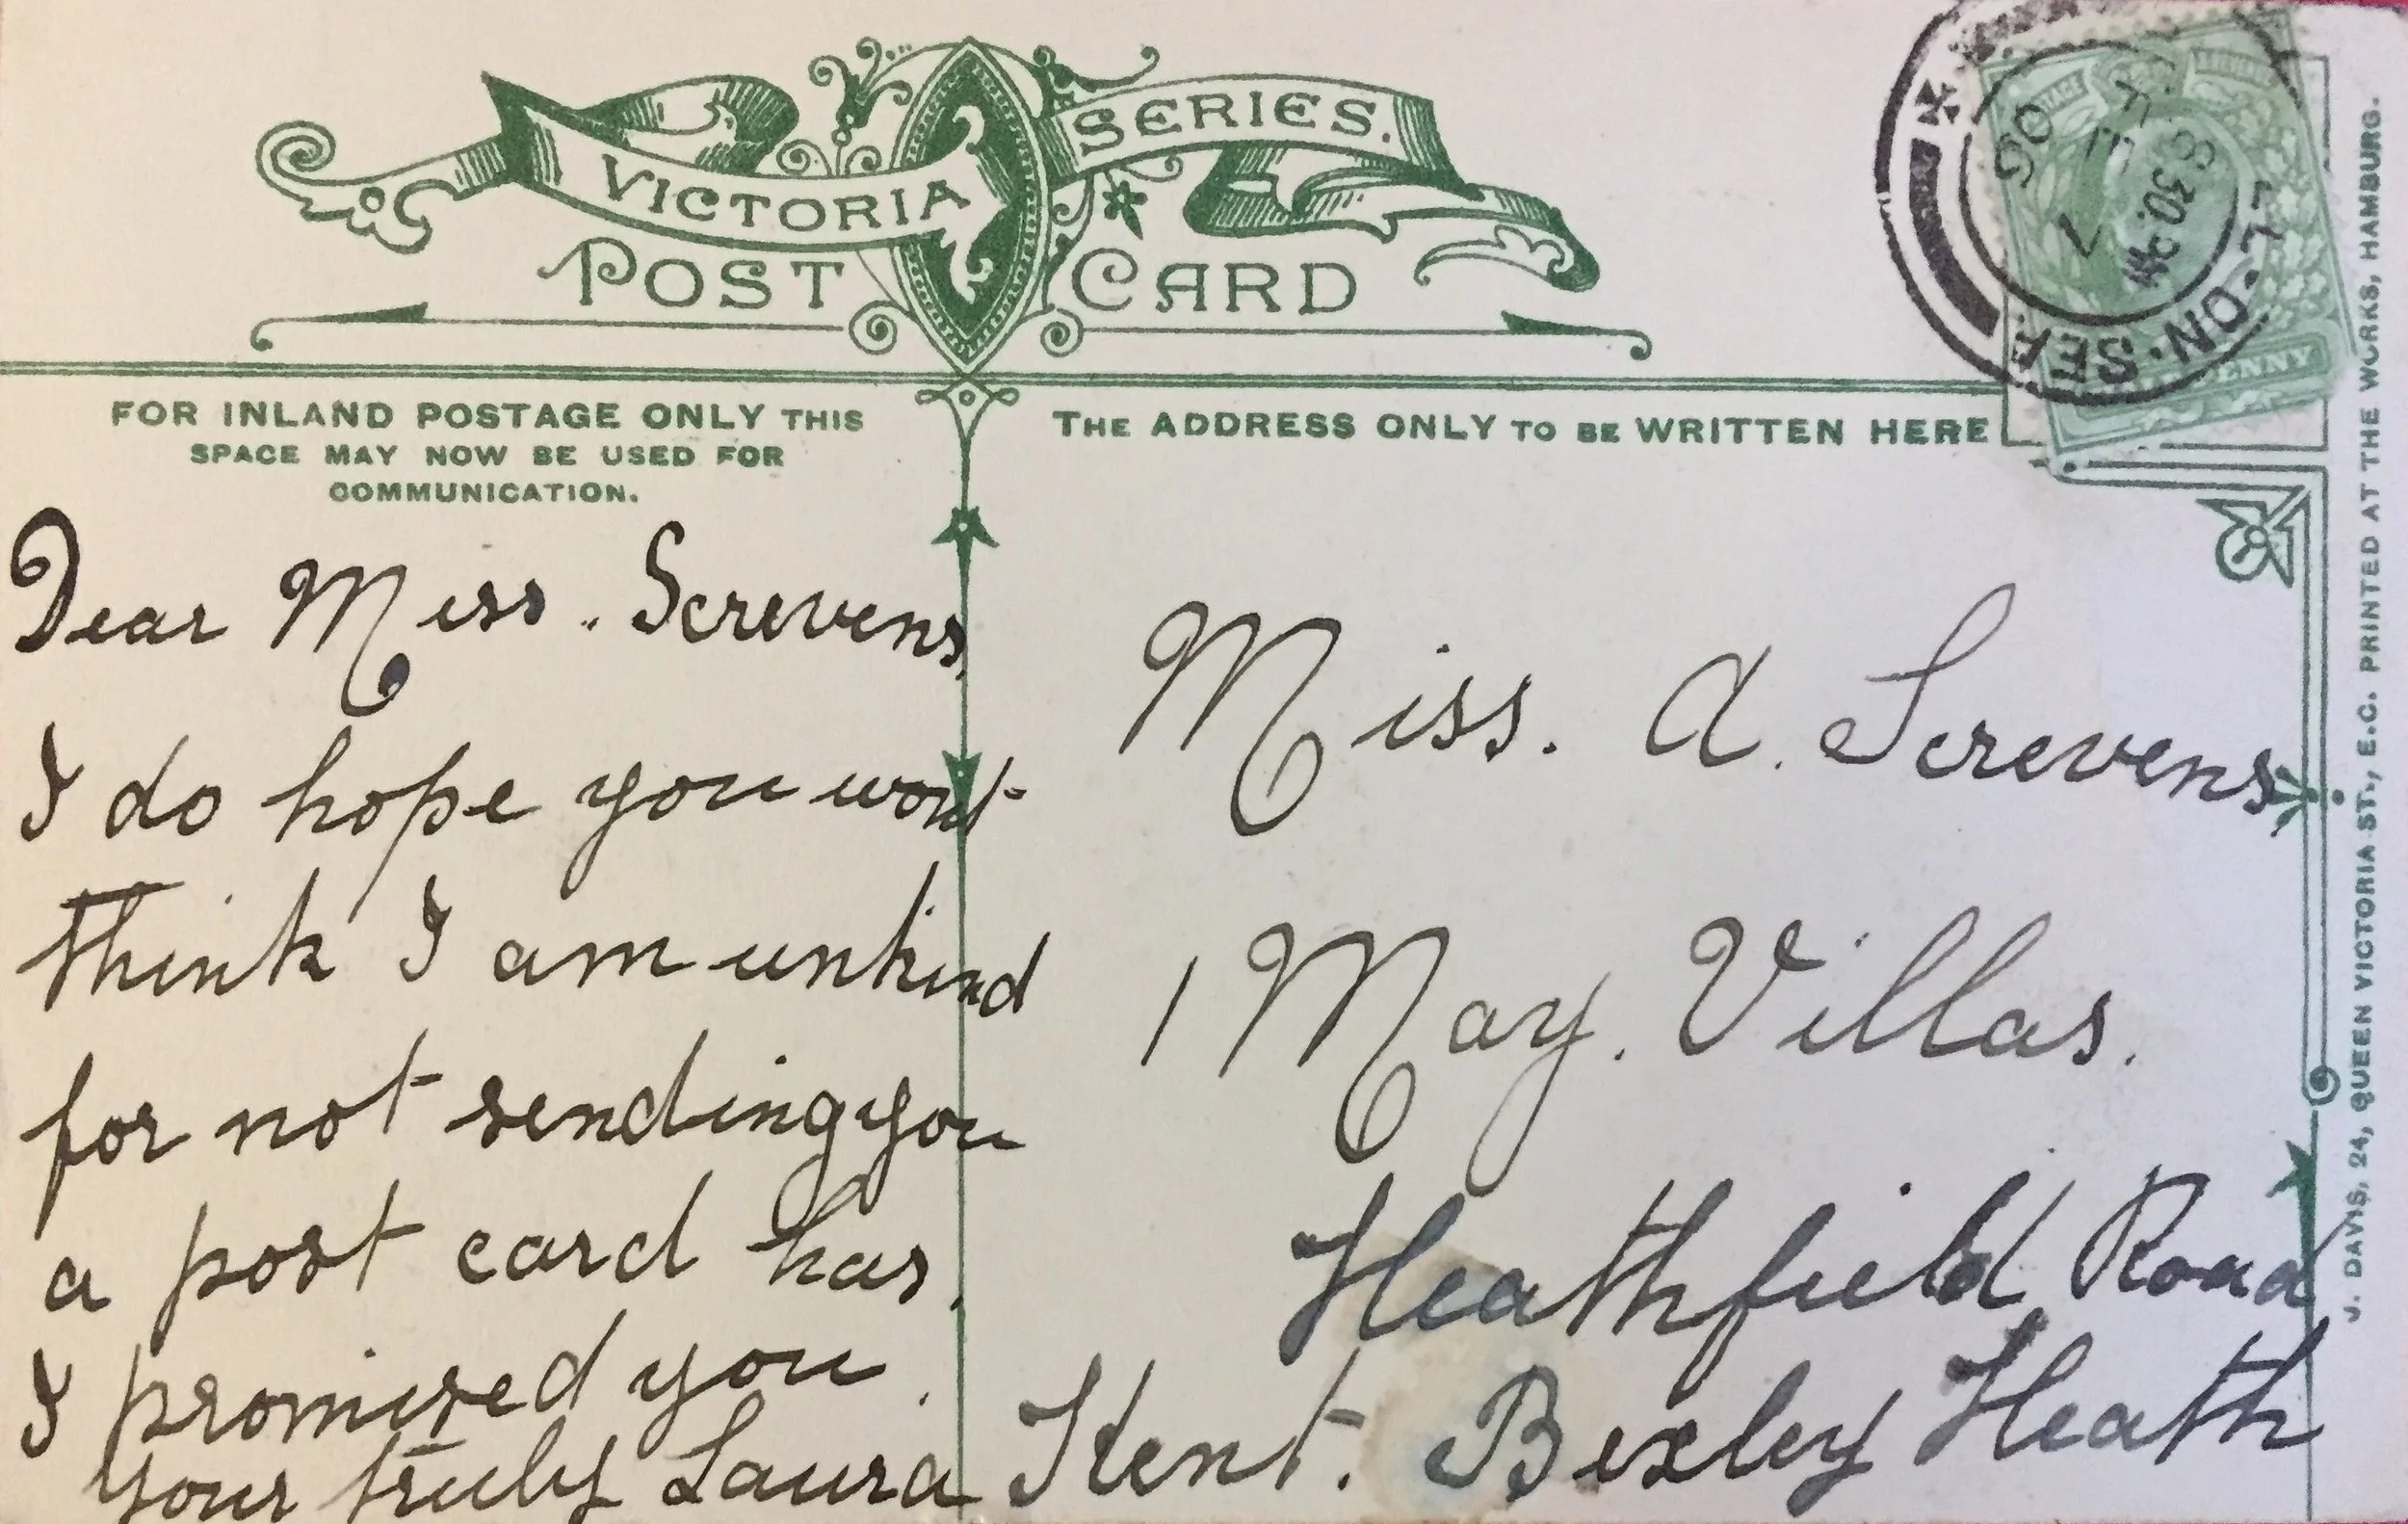 VICTORIA SERIES.
POST CARD
FOR INLAND POSTAGE ONLY THIS
SPACE MAY NOW BE USED FOR
COMMUNICATION.
Dear Miss. Screvens,
I do hope you wont
think I am unkind
for not sending you
a post card has.
I promised you.
your truly Laura
THE ADDRESS ONLY TO BE WRITTEN HERE
Miss. A. Screvens
1 May. Villas.
Heathfield Road
Kent. Bexley Heath
POSTAGE
PENNY
8.30. PM
05
ON. S.E.
J. DAVIS, 24, QUEEN VICTORIA ST., E.C. PRINTED AT THE WORKS, HAMBURG.